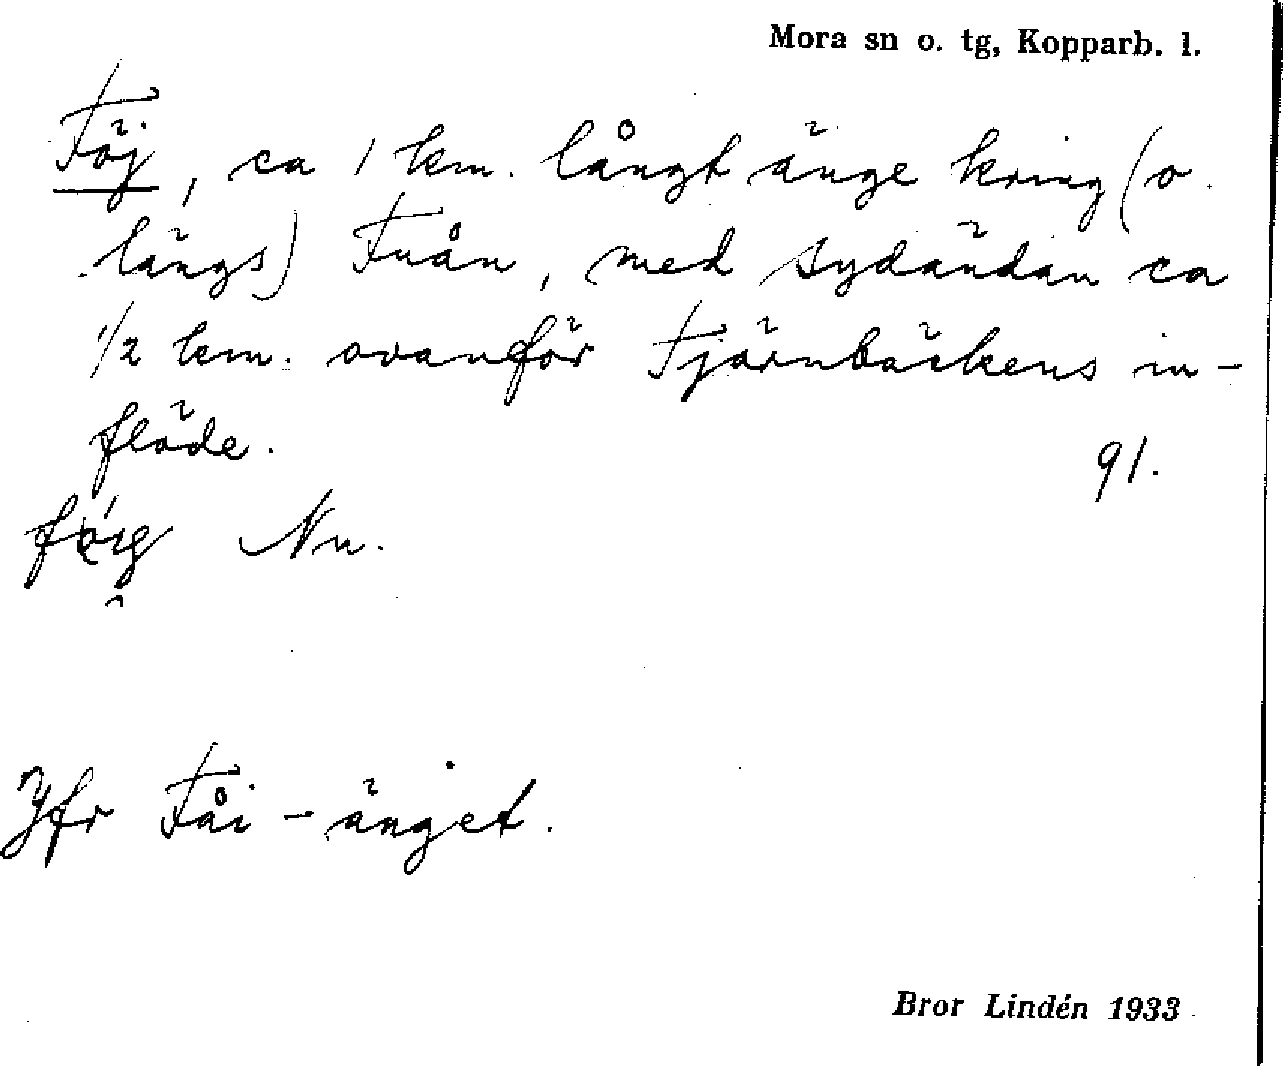 Mora sn o. tg, Kopparb. l.
Föj, ca 1 km. långt änge kring (o.
längs) Fuån, med sydändan ca
1/2 km. ovanför Tjärnbäckens in-
flöde.
91.
Nu.
Jfr Fåi-änget.
Bror Lindén 1933